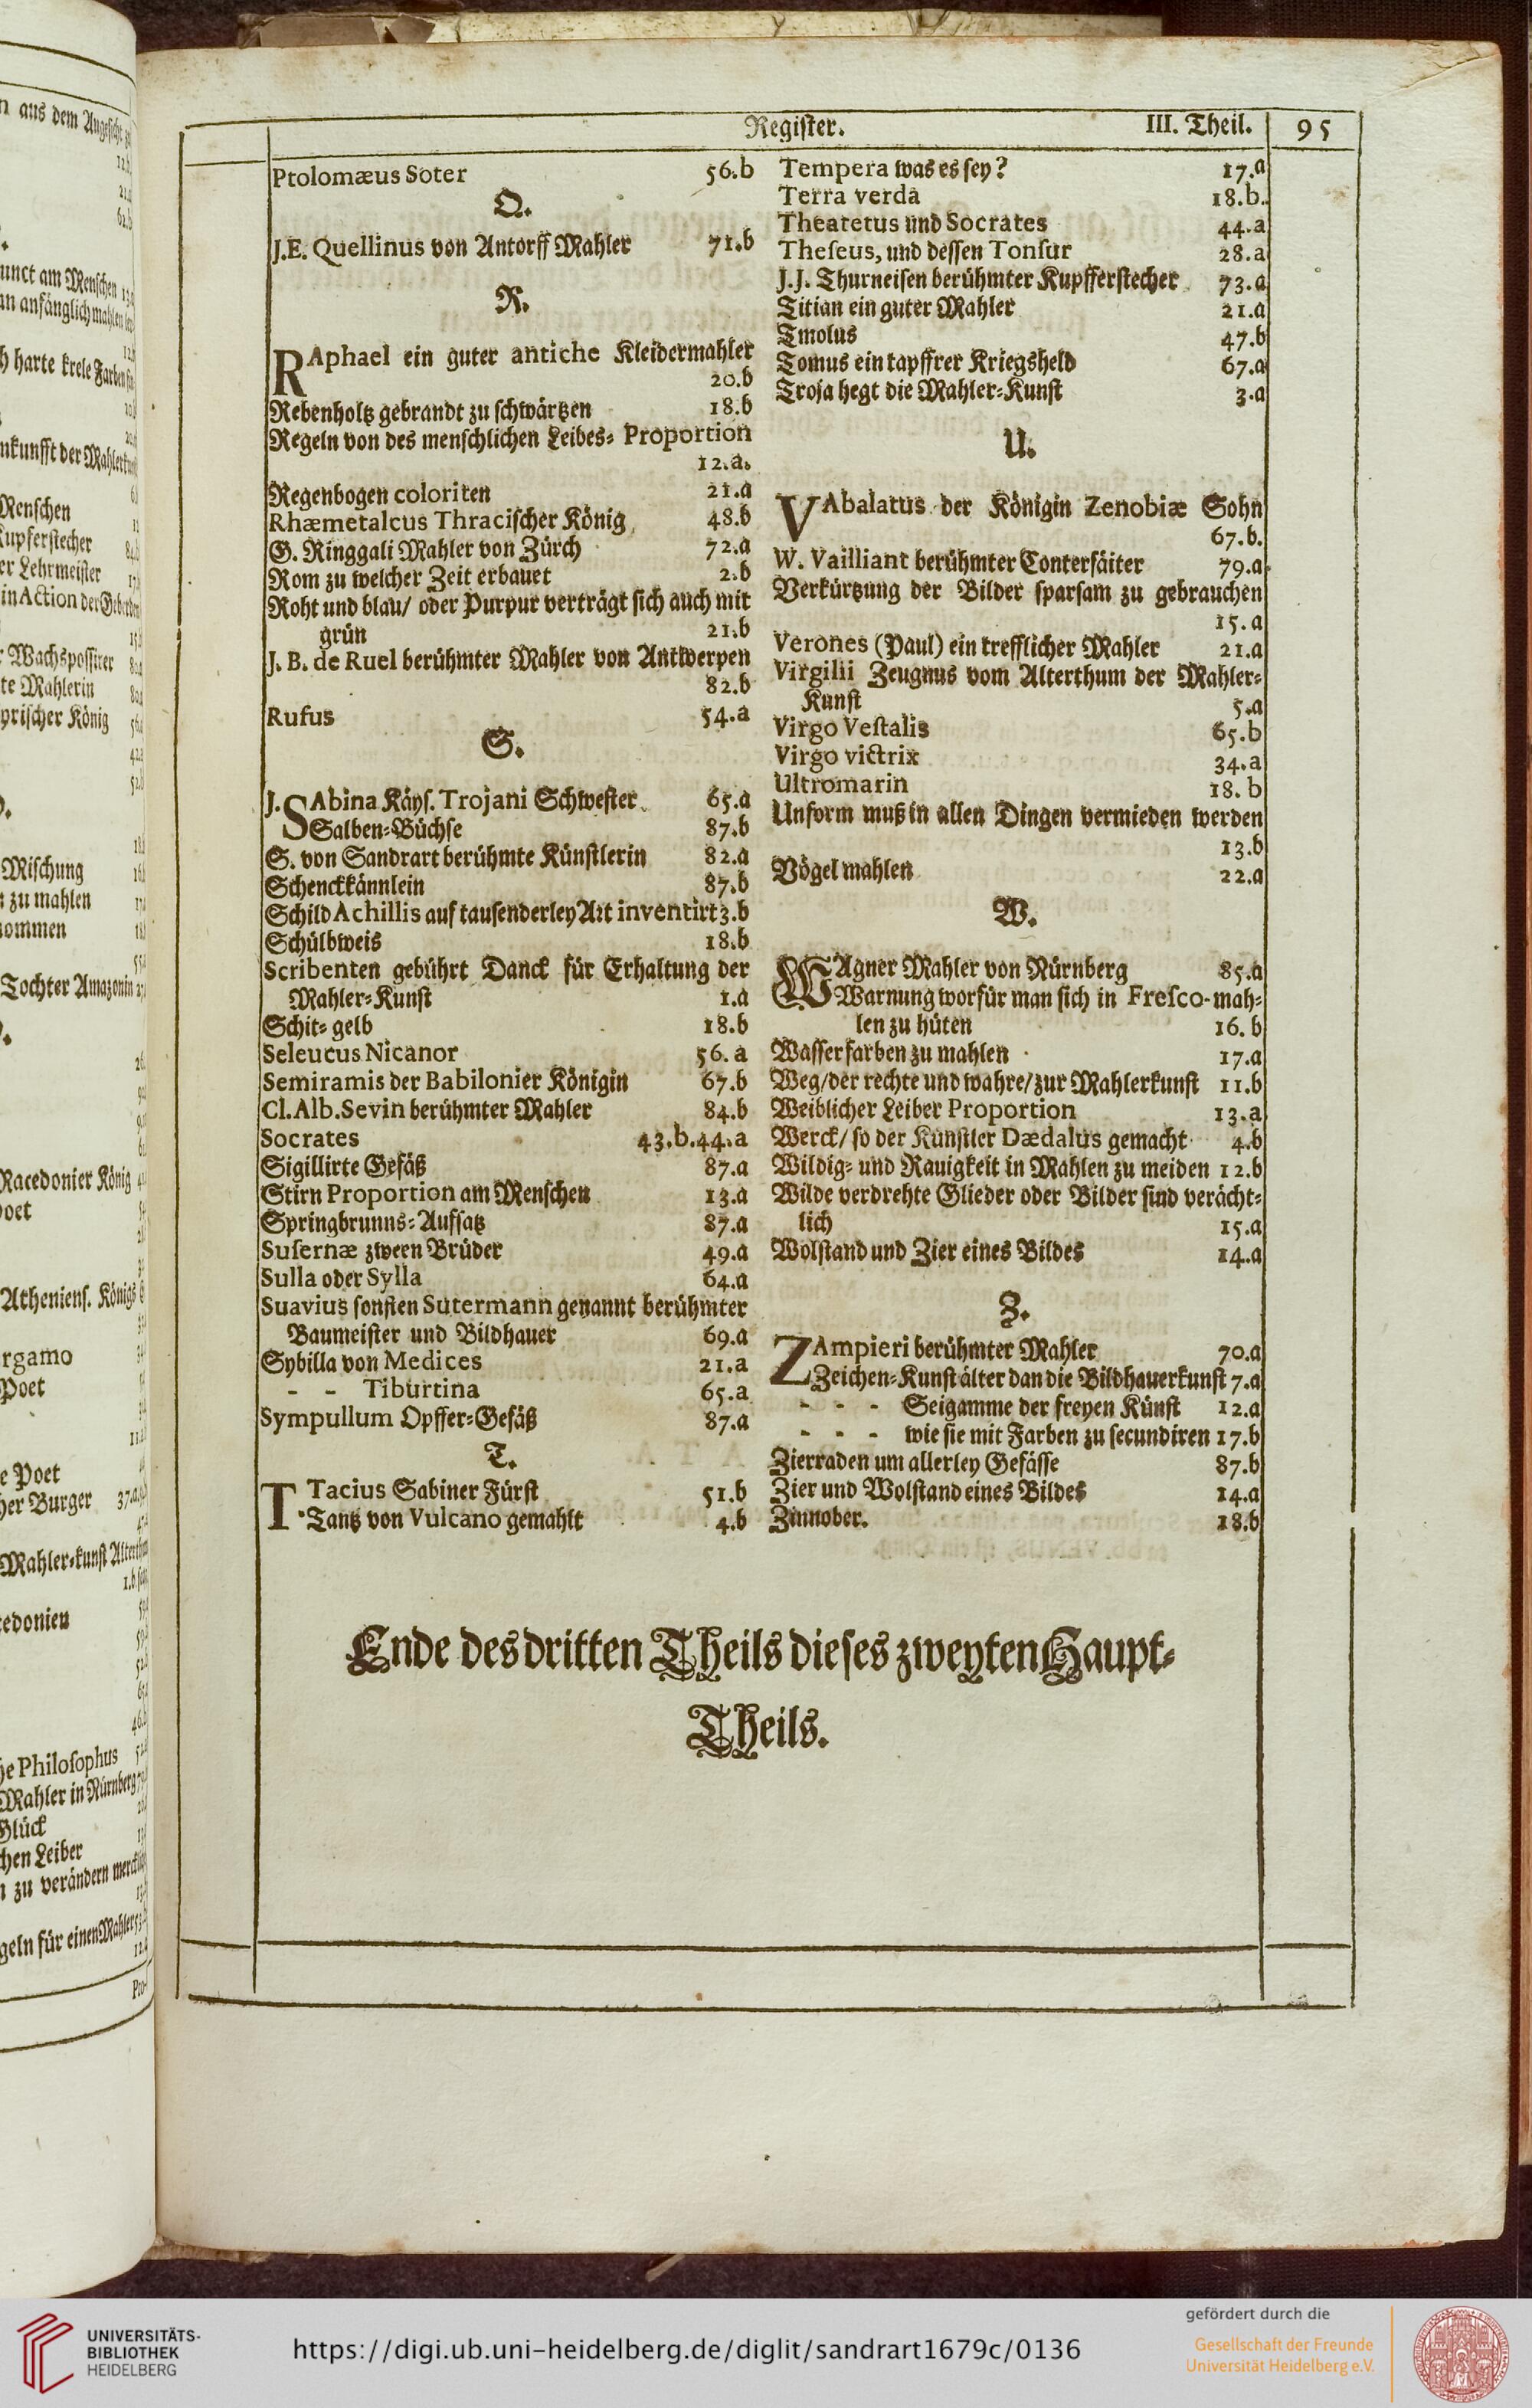 Register.
III. Theil.
95
Ptolomæus Soter 56.b
Q.
J.E. Quellinus von Antorff Mahler 71.b
R.
RAphael ein guter antiche Kleidermahler
20.b
Rebenholtz gebrandt zu schwärtzen 18.b
Regeln von des menschlichen Leibes- Proportion
12.a.
Regenbogen coloriten 21.a
Rhæmetalcus Thracischer König 48.b
G. Ringgali Mahler von Zürch 72.a
Rom zu welcher Zeit erbauet 2.b
Roht und blau/ oder Purpur verträgt sich auch mit
grün 21.b
J. B. de Ruel berühmter Mahler von Antwerpen
82.b
Rufus 54.a
S.
J. SAbina Käys. Trojani Schwester 65.a
Salben-Büchse 87.b
S. von Sandrart berühmte Künstlerin 82.a
Schenckkännlein 87.b
Schild Achillis auf tausenderley Art inventirt 3.b
Schülbweis 18.b
Scribenten gebührt Danck für Erhaltung der
Mahler-Kunst 1.a
Schit-gelb 18.b
Seleucus Nicanor 56.a
Semiramis der Babilonier Königin 67.b
Cl. Alb. Sevin berühmter Mahler 84.b
Socrates 43.b.44.a
Sigillirte Gefäß 87.a
Stirn Proportion am Menschen 13.a
Springbrunns-Aufsatz 87.a
Susernæ zween Brüder 49.a
Sulla oder Sylla 64.a
Suavius sonsten Sutermann genannt berühmter
Baumeister und Bildhauer 69.a
Sybilla von Medices 21.a
- - Tiburtina 65.a
Sympullum Opffer-Gefäß 87.a
T.
T Tacius Sabiner Fürst 51.b
Tantz von Vulcano gemahlt 4.b
Tempera was es sey? 17.a
Terra verda 18.b.
Theatetus und Socrates 44.a
Theseus, und dessen Tonsur 28.a
J.J. Thurneisen berühmter Kupfferstecher 73.a
Titian ein guter Mahler 21.a
Tmolus 47.b
Tomus ein tapffrer Kriegsheld 67.a
Troja hegt die Mahler-Kunst 3.a
U.
VAbalatus der Königin Zenobiæ Sohn
67.b.
W. Vailliant berühmter Conterfäiter 79.a.
Verkürtzung der Bilder sparsam zu gebrauchen
15.a
Verones (Paul) ein trefflicher Mahler 21.a
Virgilii Zeugnus vom Alterthum der Mahler-
Kunst 5.a
Virgo Vestalis 65.b
Virgo victrix 34.a
Ultromarin 18.b
Unform muß in allen Dingen vermieden werden
13.b
Vögel mahlen 22.a
W.
WAgner Mahler von Nürnberg 85.a
Warnung worfür man sich in Fresco-mah-
len zu hüten 16.b
Wasserfarben zu mahlen 17.a
Weg/der rechte und wahre/zur Mahlerkunst 11.b
Weiblicher Leiber Proportion 13.a
Werck/ so der Künstler Dædalus gemacht 4.b
Wildig- und Rauigkeit in Mahlen zu meiden 12.b
Wilde verdrehte Glieder oder Bilder sind verächt-
lich 15.a
Wolstand und Zier eines Bildes 14.a
Z.
ZAmpieri berühmter Mahler 70.a
Zeichen-Kunst älter dan die Bildhauerkunst 7.a
- - - Seigamme der freyen Künst 12.a
- - - wie sie mit Farben zu secundiren 17.b
Zierraden um allerley Gefässe 87.b
Zier und Wolstand eines Bildes 14.a
Zinnober. 18.b
Ende des dritten Theils dieses zweyten Haupt-
Theils.
UNIVERSITÄTS-
BIBLIOTHEK
HEIDELBERG
https://digi.ub.uni-heidelberg.de/diglit/sandrart1679c/0136
gefördert durch die
Gesellschaft der Freunde
Universität Heidelberg e.V.